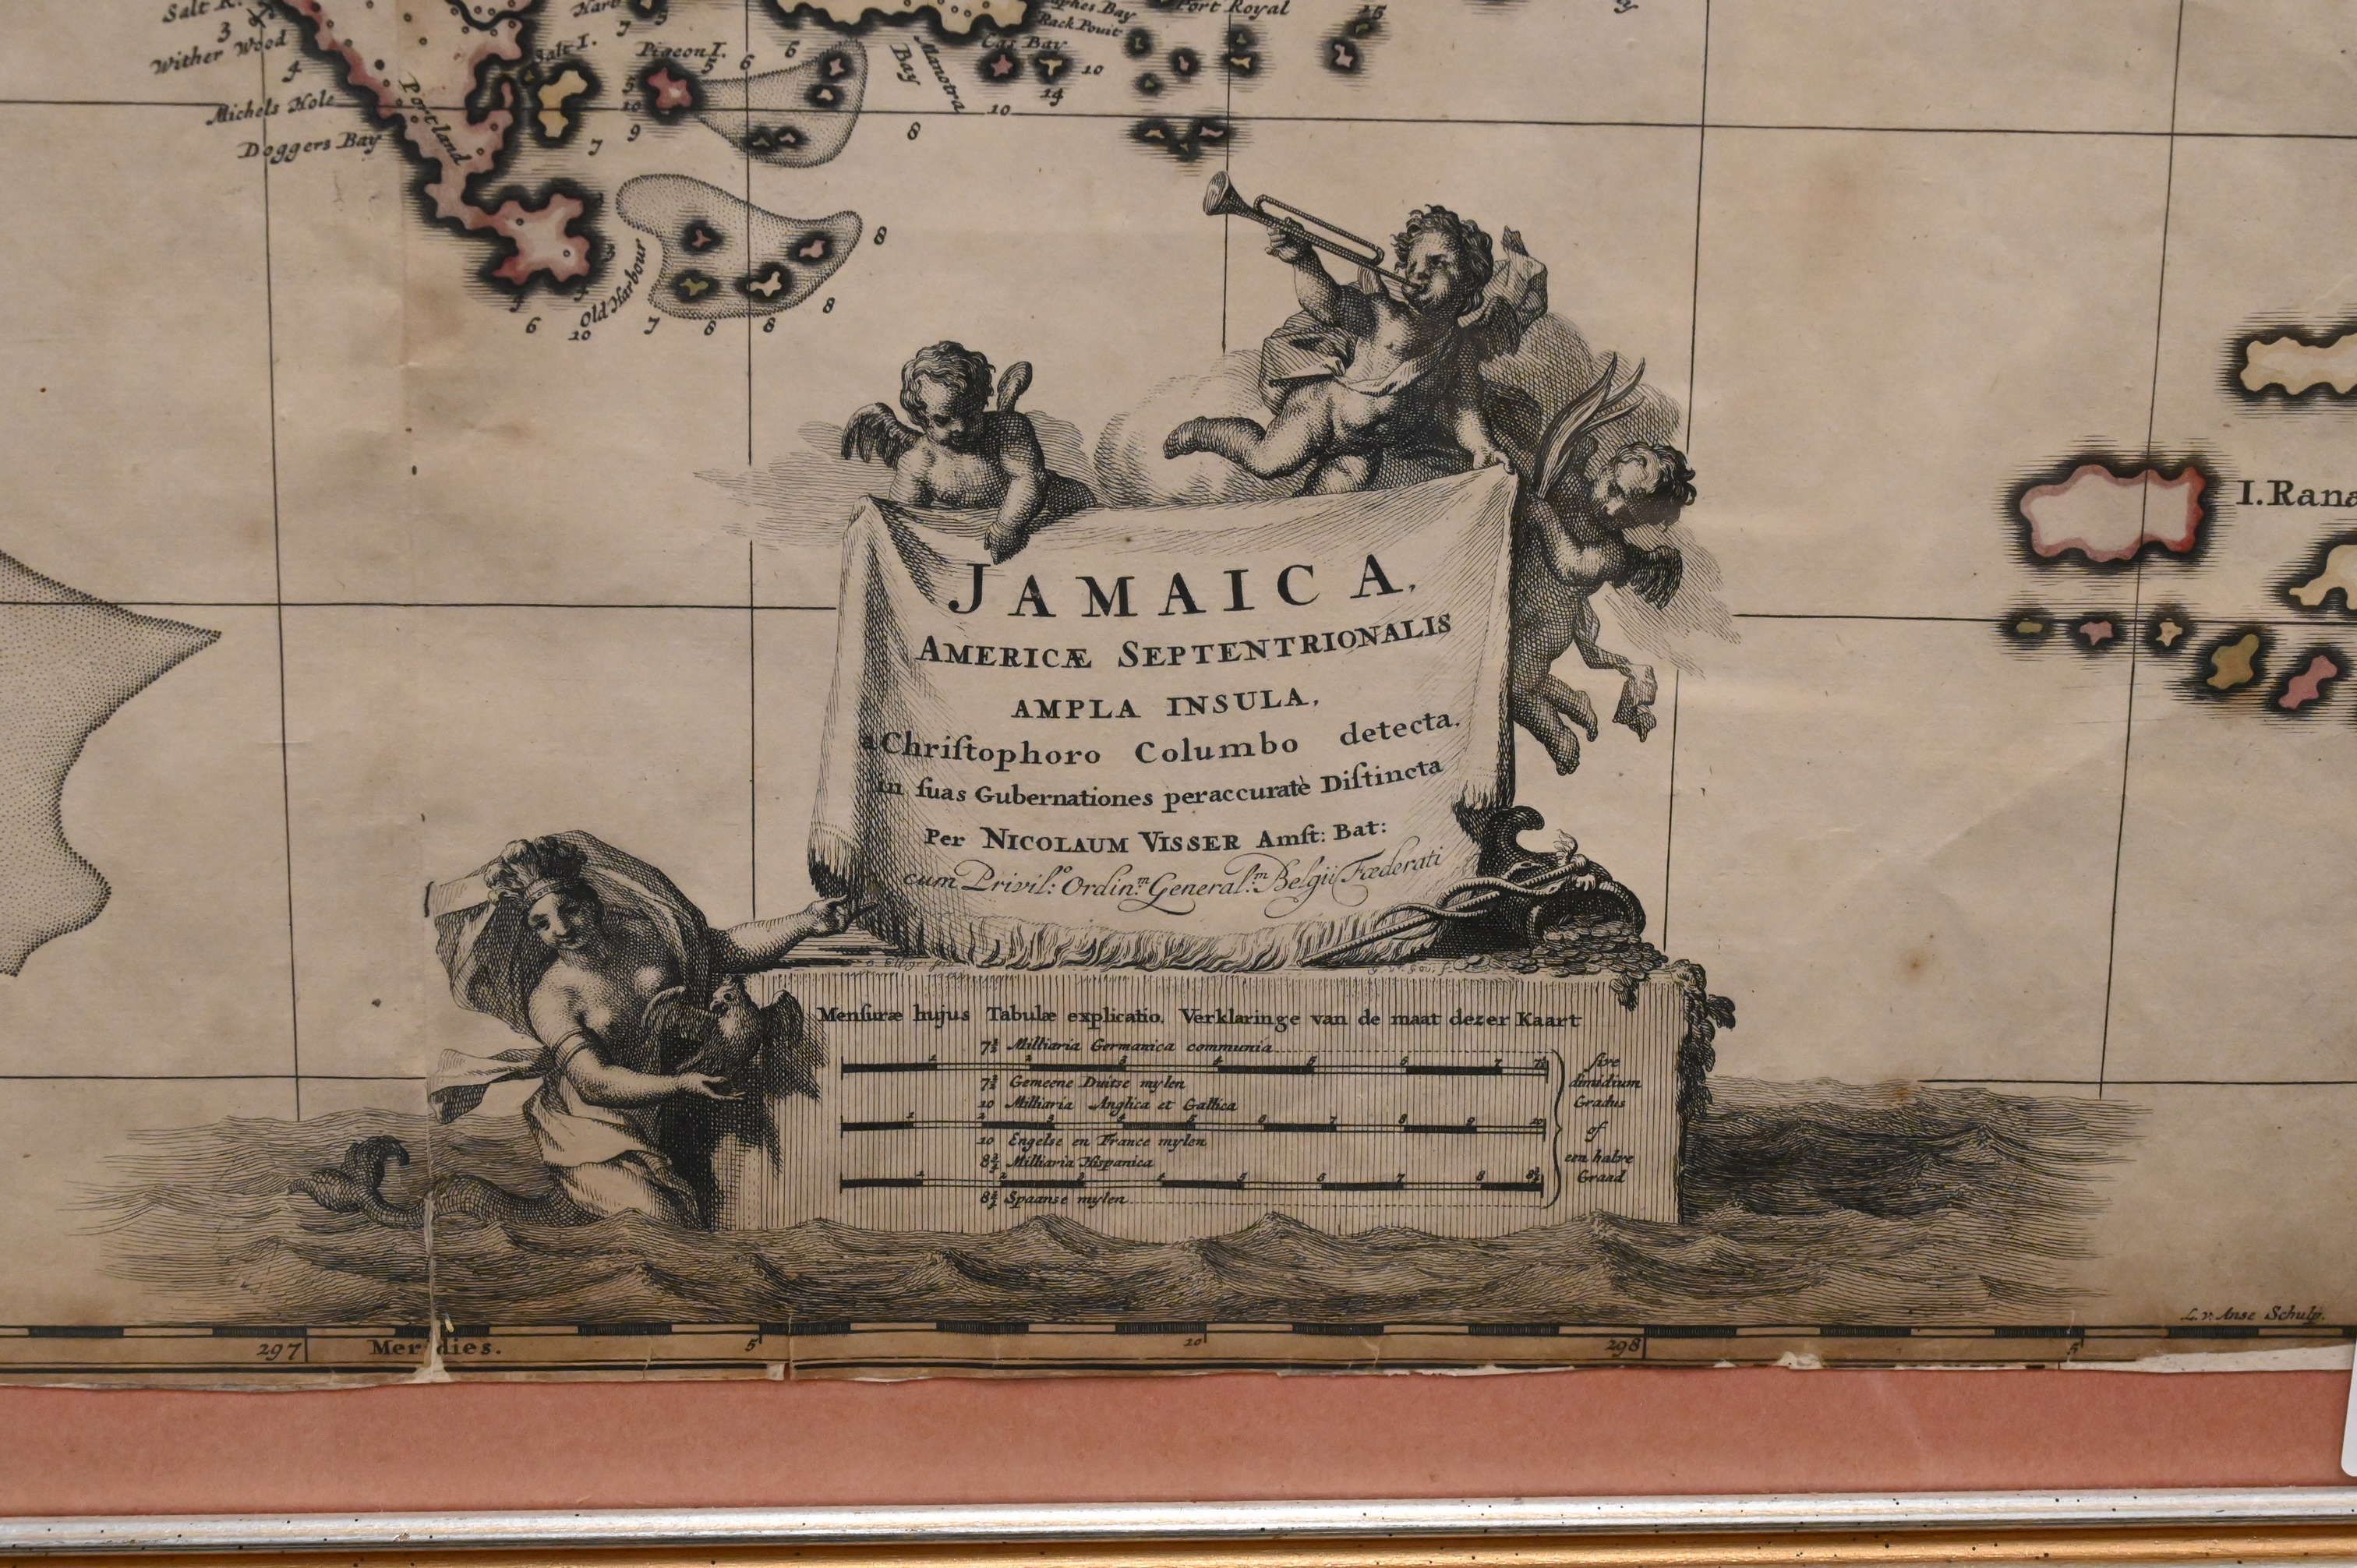 Salt R.
3
Wither Wood
4
Michels Hole
Doggers Bay
Portland
Salt I.
7
Pigeon I.
5
6
6
5
10
9
7
Bay
Manotra
8
Rack Point
Port Royal
10
14
10
Old Harbour
8
8
8
8
7
10
6
I. Rana
JAMAICA,
AMERICÆ SEPTENTRIONALIS
AMPLA INSULA,
a Chriſtophoro Columbo detecta,
in ſuas Gubernationes peraccuratè Diſtincta
Per NICOLAUM VISSER Amſt: Bat:
cum Privil:º Ordin:m General:m Belgii Fœderati
Menſuræ hujus Tabulæ explicatio. Verklaringe van de maat dezer Kaart
7½ Milliaria Germanica communia
1 2 3 4 5 6 7 7½
7½ Gemeene Duitse mylen
10 Milliaria Anglica et Gallica
1 2 3 4 5 6 7 8 9 10
10 Engelse en France mylen
8¾ Milliaria Hispanica
1 2 3 4 5 6 7 8 8¾
8¾ Spaanse mylen
ſive
dimidium
Gradus
of
een halve
Graad
L. v. Anse Schulp.
297 Meridies. 5 10 298 5